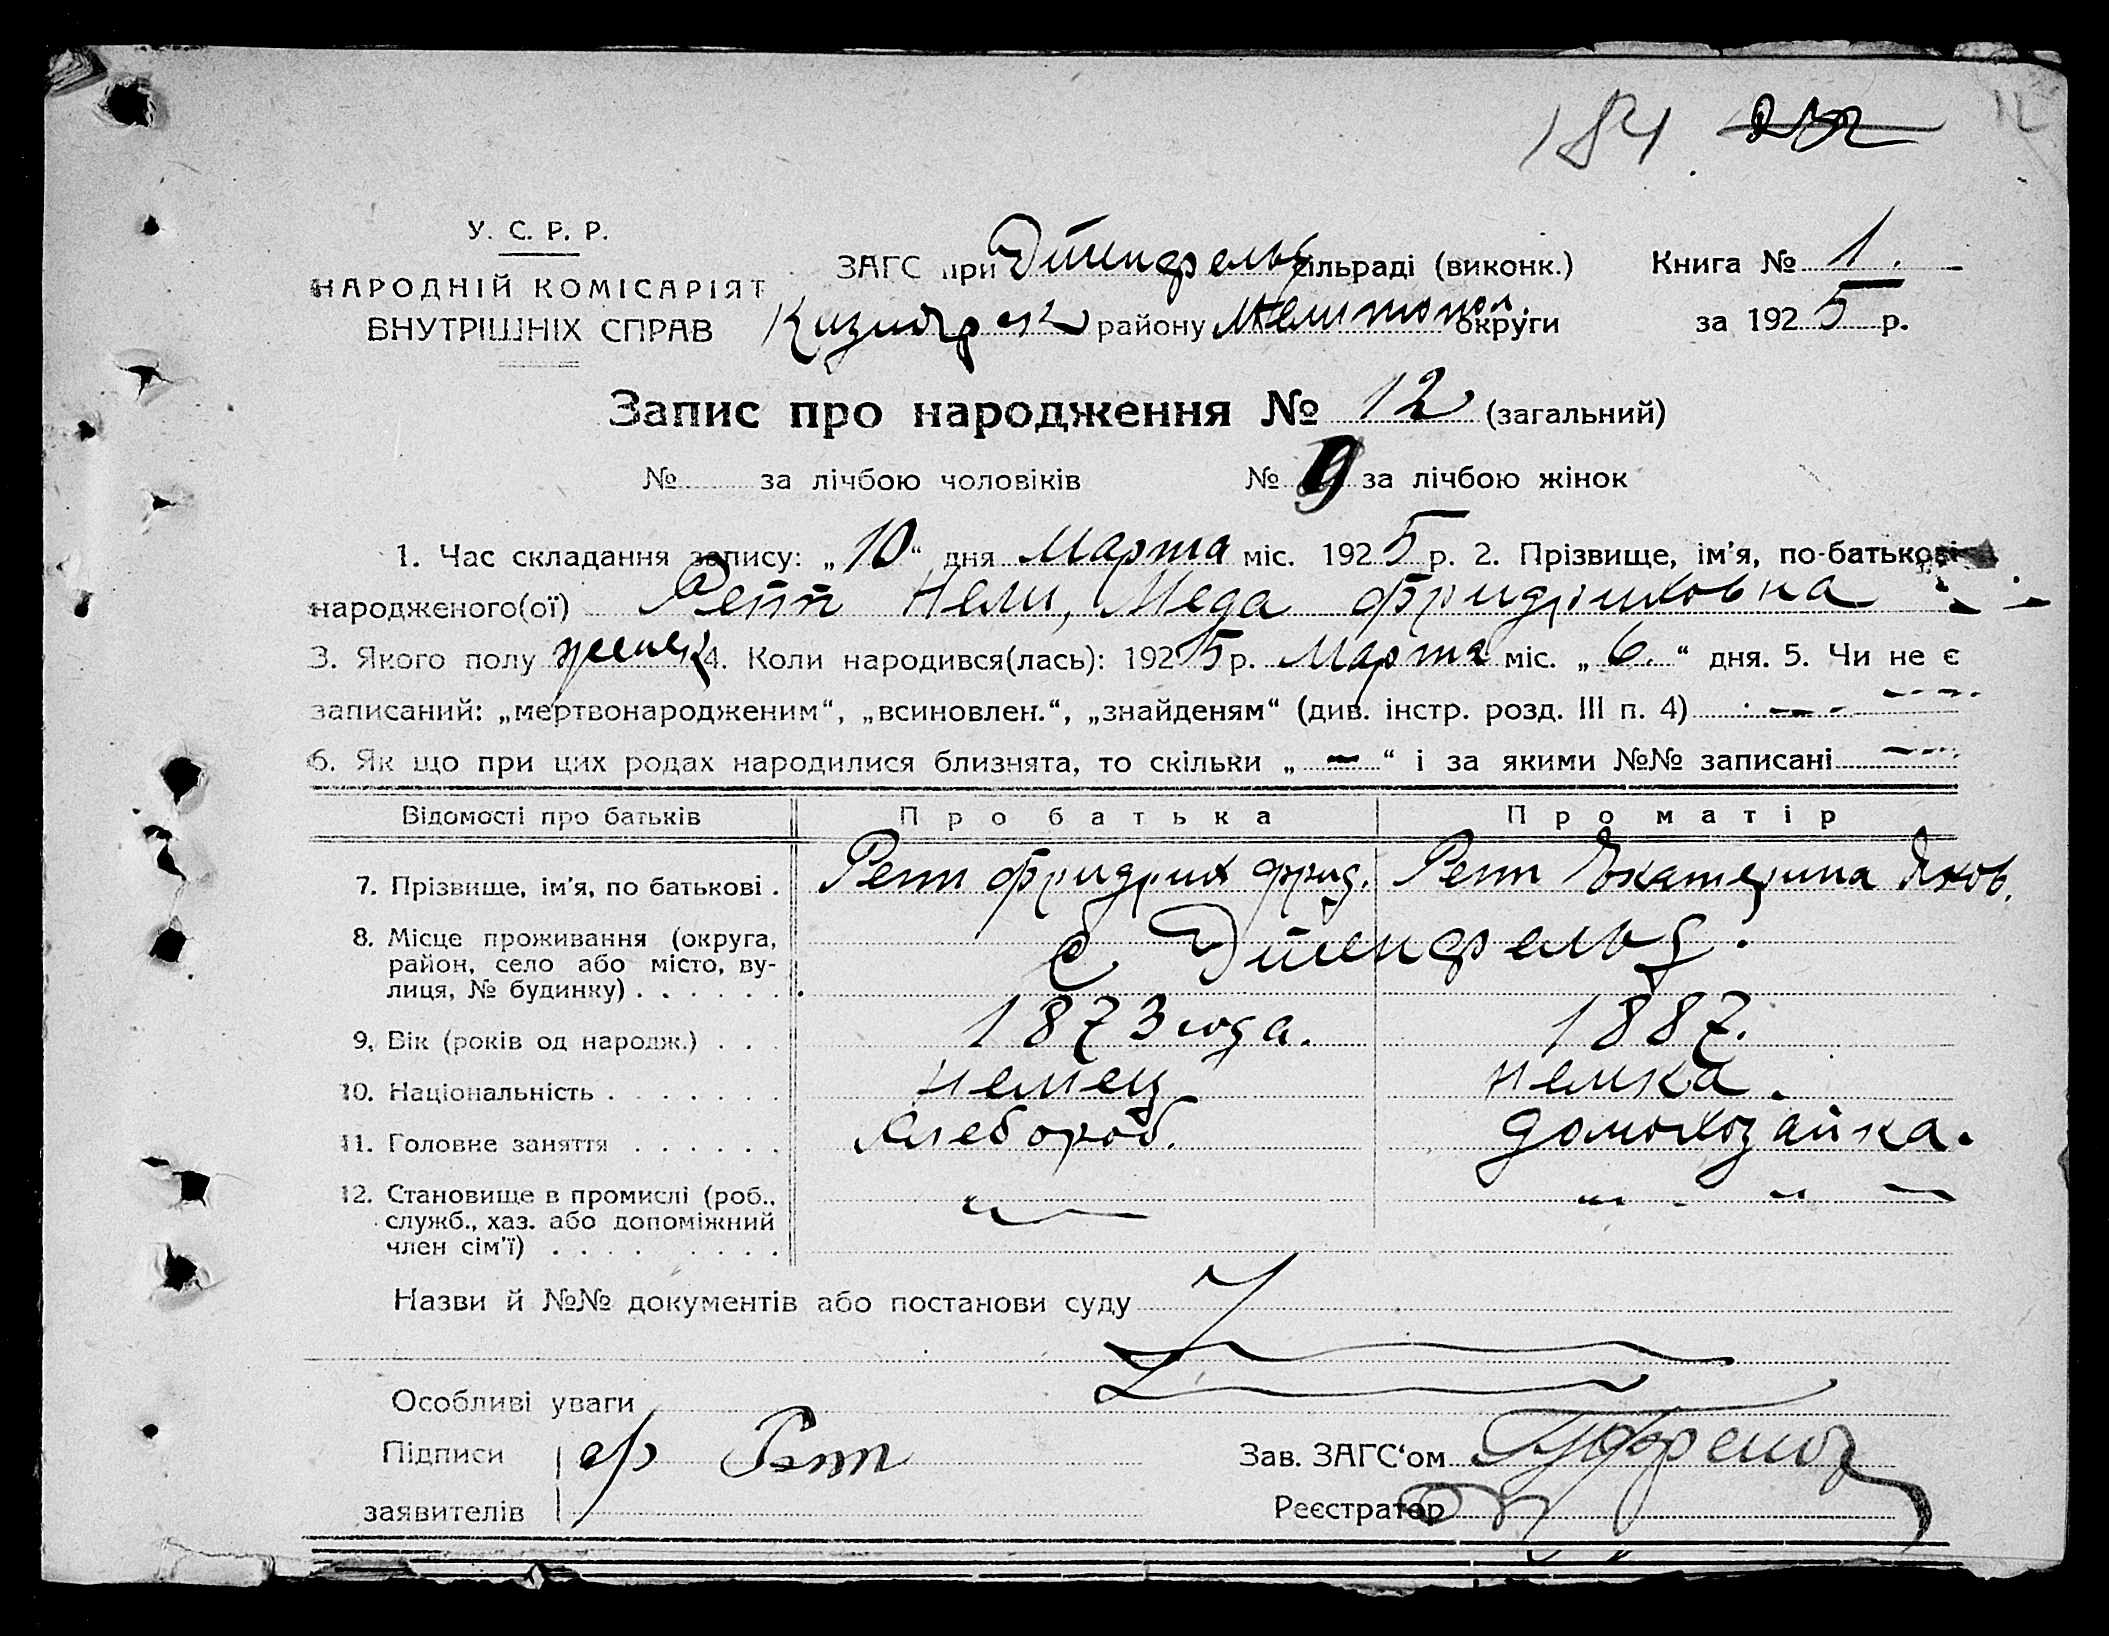 184 232
У. С. Р. Р.
НАРОДНІЙ КОМІСАРІЯТ
ВНУТРІШНІХ СПРАВ
ЗАГС при Дитенфельд сільраді (виконк.)
районну Мелитопол. округи
Книга № 1.
за 1925 р.
Запис про народження № 12 (загальний)
№ за лічбою чоловіків № 9 за лічбою жінок
1. Час складання запису: „10“ дня Марта міс. 1925 р. 2. Прізвище, ім'я, по-батькові
народженого(ої) Репп Нели, Меда Фридриховна
3. Якого полу женск 4. Коли народився(лась): 1925 р. Марта міс. „6.“ дня. 5. Чи не є
записаний: „мертвонародженим“, „всиновлен.“, „знайденям“ (див. інстр. розд. III п. 4)
6. Як що при цих родах народилися близнята, то скільки „—“ і за якими №№ записані
Відомості про батьків Про батька Про матір
7. Прізвище, ім'я, по батькові . Репп Фридрих Фрид. Репп Екатерина Яков.
8. Місце проживання (округа,
район, село або місто, ву-
лиця, № будинку) . . . . . . с. Дитенфельд.
9. Вік (років од народж.) . . . 1873 года. 1887.
10. Національність . . . . . . . немец немка.
11. Головне заняття . . . . . . хлебороб. домохозайка.
12. Становище в промислі (роб.,
служб., хаз. або допоміжний
член сім'ї) . . . . . . . . .
Назви й №№ документів або постанови суду
Особливі уваги
Підписи Фр Репп
заявителів
Зав. ЗАГС'ом
Реєстратор